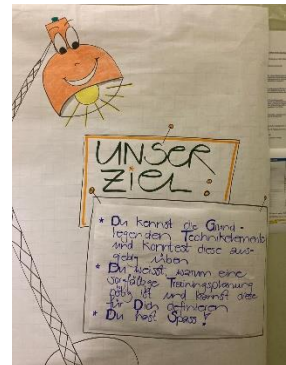 UNSER
ZIEL :
* Du kennst die Grund-
legenden Technikelemente
und konntest diese aus-
giebig üben
* Du weisst, warum eine
sorgfältige Trainingsplanung
nötig ist und kannst diese
für Dich definieren
* Du hast Spass !